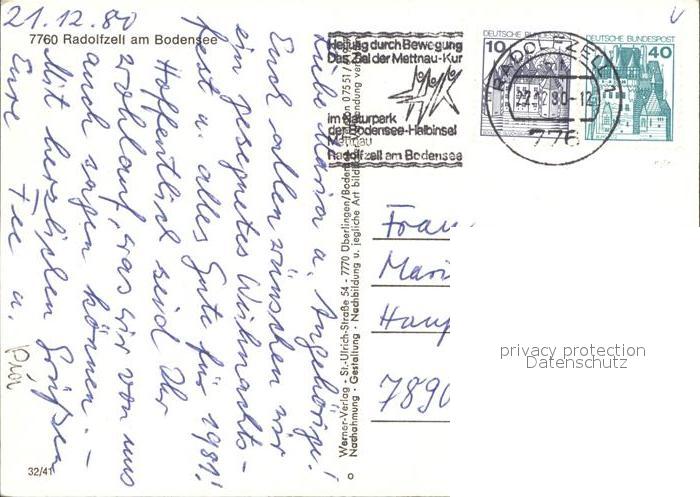 21.12.80
7760 Radolfzell am Bodensee
Liebe Maria u. Angehörige!
Euch allen wünschen wir
ein gesegnetes Weihnachts-
fest u. alles Gute für 1981!
Hoffentlich seid Ihr
wohlauf, was wir von uns
auch sagen können. –
Mit herzlichen Grüßen
Eure
u.
Pia
32/41
Werner-Verlag - St.-Ulrich-Straße 54 - 7770 Überlingen/Bodensee 07551/
Nachahmung · Gestaltung · Nachbildung u. jegliche Art bildlicher
Heilung durch Bewegung
Das Ziel der Mettnau-Kur
im Naturpark
der Bodensee-Halbinsel
Mettnau
Radolfzell am Bodensee
DEUTSCHE BUNDESPOST
10
DEUTSCHE BUNDESPOST
40
RADOLFZELL 1
80-12
776
Frau
Mari
Haup
7890
privacy protection
Datenschutz